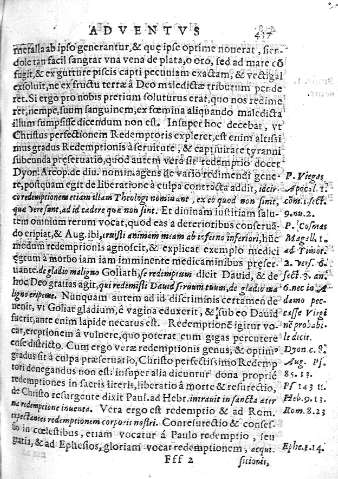 ADVENTVS
437
metalla ab ipso generantur, & quę ipse optime nouerat, fier-
dole tan facil sangrar vna vena de plata, o oro, sed ad mare cō
fugit, & ex gutture piscis capti pecuniam exactam, & vectigal
exsoluit, ne ex fructu terræ à Deo maledictæ tributum pende-
ret. Si ergo pro nobis pretium soluturus erat, quo nos redime
ret, nempe, suum sanguinem, ex fœmina aliquando maledicta
illum sumpsisse dicendum non est. Insuper hoc decebat, vt
Christus perfectionem Redemptoris expleret, est enim altissi-
mus gradus Redemptionis à seruitute, & captiuitate tyranni
subeunda præseruatio, quod autem vera sit redemptio docet
Dyon. Areop. de diu. nomin. agens de vario redimendi gene-
re, postquam egit de liberatione à culpa contracta addit, idcir
co redemptionem etiam illam Theologi nominant, ex eo quod non sinit,
que vere sunt, ad id tadere que non sint. Et diuinam iustitiam salu-
tem omnium rerum vocat, quod eas a deterioribus conserua-
do eripiat, & Aug. ibi, eruisti animam meam ab inferno inferiori, hūc
modum redemptionis agnoscit, & explicat exemplo medici
ęgrum à morbo iam iam imminente medicaminibus præser-
uante. de gladio maligno Goliath, se redemptum dicit Dauid, & de
hoc Deo gratias agit, qui redimisti Dauid seruum tuum, de gladio ma
ligno eripe me. Nunquam autem ad id discriminis certamen de
uenit, vt Goliat gladium, è vagina eduxerit, & sub eo Dauid
fuerit, ante enim lapide necatus est. Redemptionē igitur vo-
cat, ereptionem à vulnere, quo poterat cum gigas percutere
ense districto. Cum ergo vera redemptionis genus, & optim9
gradus sit à culpa præseruatio, Christo perfectissimo Redemp
tori denegandus non est: insuper alia dicuntur dona propriè
redemptiones in sacris literis, liberatio à morte & resurectio,
de Christo resurgente dixit Paul. ad Hebr. intrauit in sancta æter
na redemptione inuenta. Vera ergo est redemptio & ad Rom.
expectantes redemptionem corporis nostri. Conresurectio & conses-
sio in cœlestibus, etiam vocatur á Paulo redemptio, seu
gratis, & ad Ephesios, gloriam vocat redemptionem, acqui-
Fff 2
sitionis,
P. Viegas
Apocal. 1.
com. 1. sect.
9. nu. 2.
P. Cosmas
Magell. 1.
ad Timot.
2. vers. 6.
sect. 3. an.
6. nec io A
damo pec-
casse Virgi
nē probabi-
le dicit.
Dyon c. 8.
Aug. Ps.
85. 13.
Ps 143 11.
Heb. 9. 13.
Rom. 8. 23
Ephe. 1. 14.